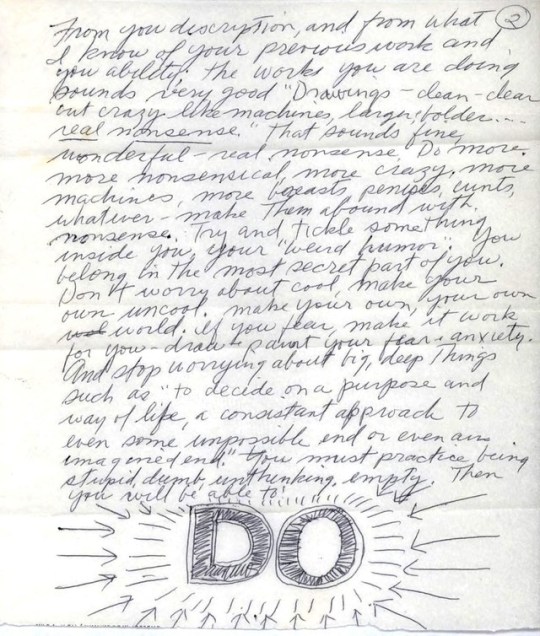 2
From you description, and from what
I know of your previous work and
you ability; the works you are doing
sounds very good "Drawings – clean – clear
but crazy like machines, larger, bolder....
real nonsense." That sounds fine,
wonderful – real nonsense. Do more.
more nonsensical, more crazy, more
machines, more breasts, penises, cunts,
whatever – make them abound with
nonsense. Try and tickle something
inside you, your "weird humor." You
belong in the most secret part of you.
Don't worry about cool, make your
own uncool. make your own, your own
world. If you fear, make it work
for you – draw & paint your fear & anxiety.
And stop worrying about big, deep things
such as "to decide on a purpose and
way of life, a consistant approach to
even some impossible end or even an
imagined end." You must practice being
stupid, dumb, unthinking, empty. Then
you will be able to!
DO